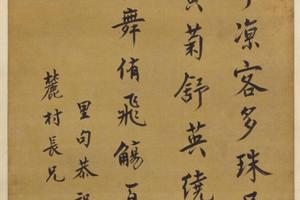 凉客多珠
黄菊舒英繞
舞侑飛觴百
里句恭祝
麓村長兄